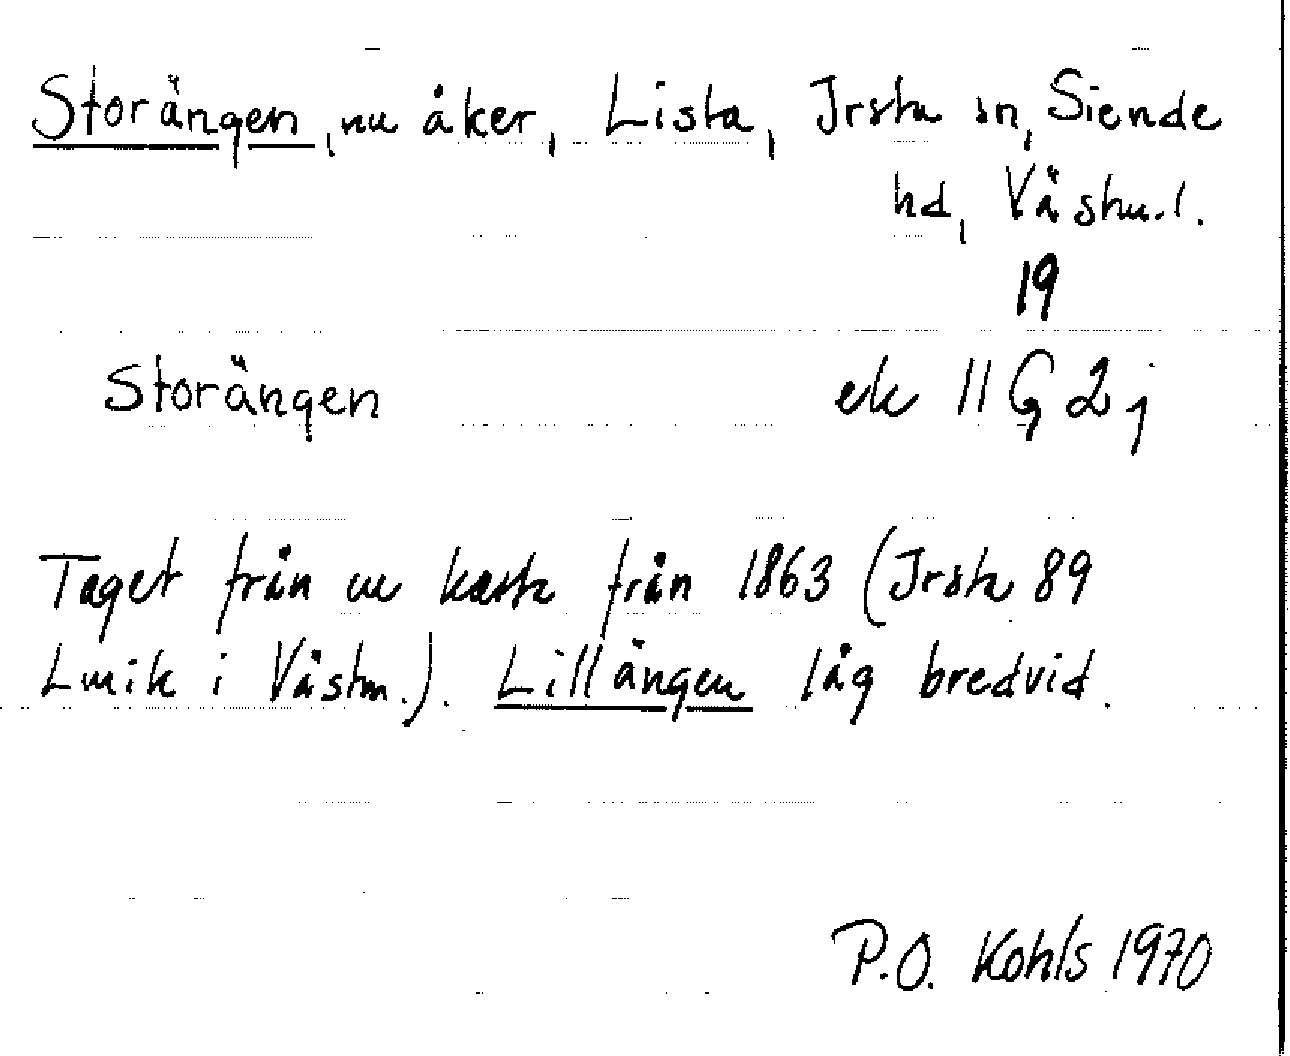 Storängen, nu åker, Lista, Irsta sn, Siende
hd, Västm.l.
19
Storängen ek 11 G 2 j
Taget från en karta från 1863 (Irsta 89
Lmik i Västm.). Lillängen låg bredvid.
P.O. Kohls 1970